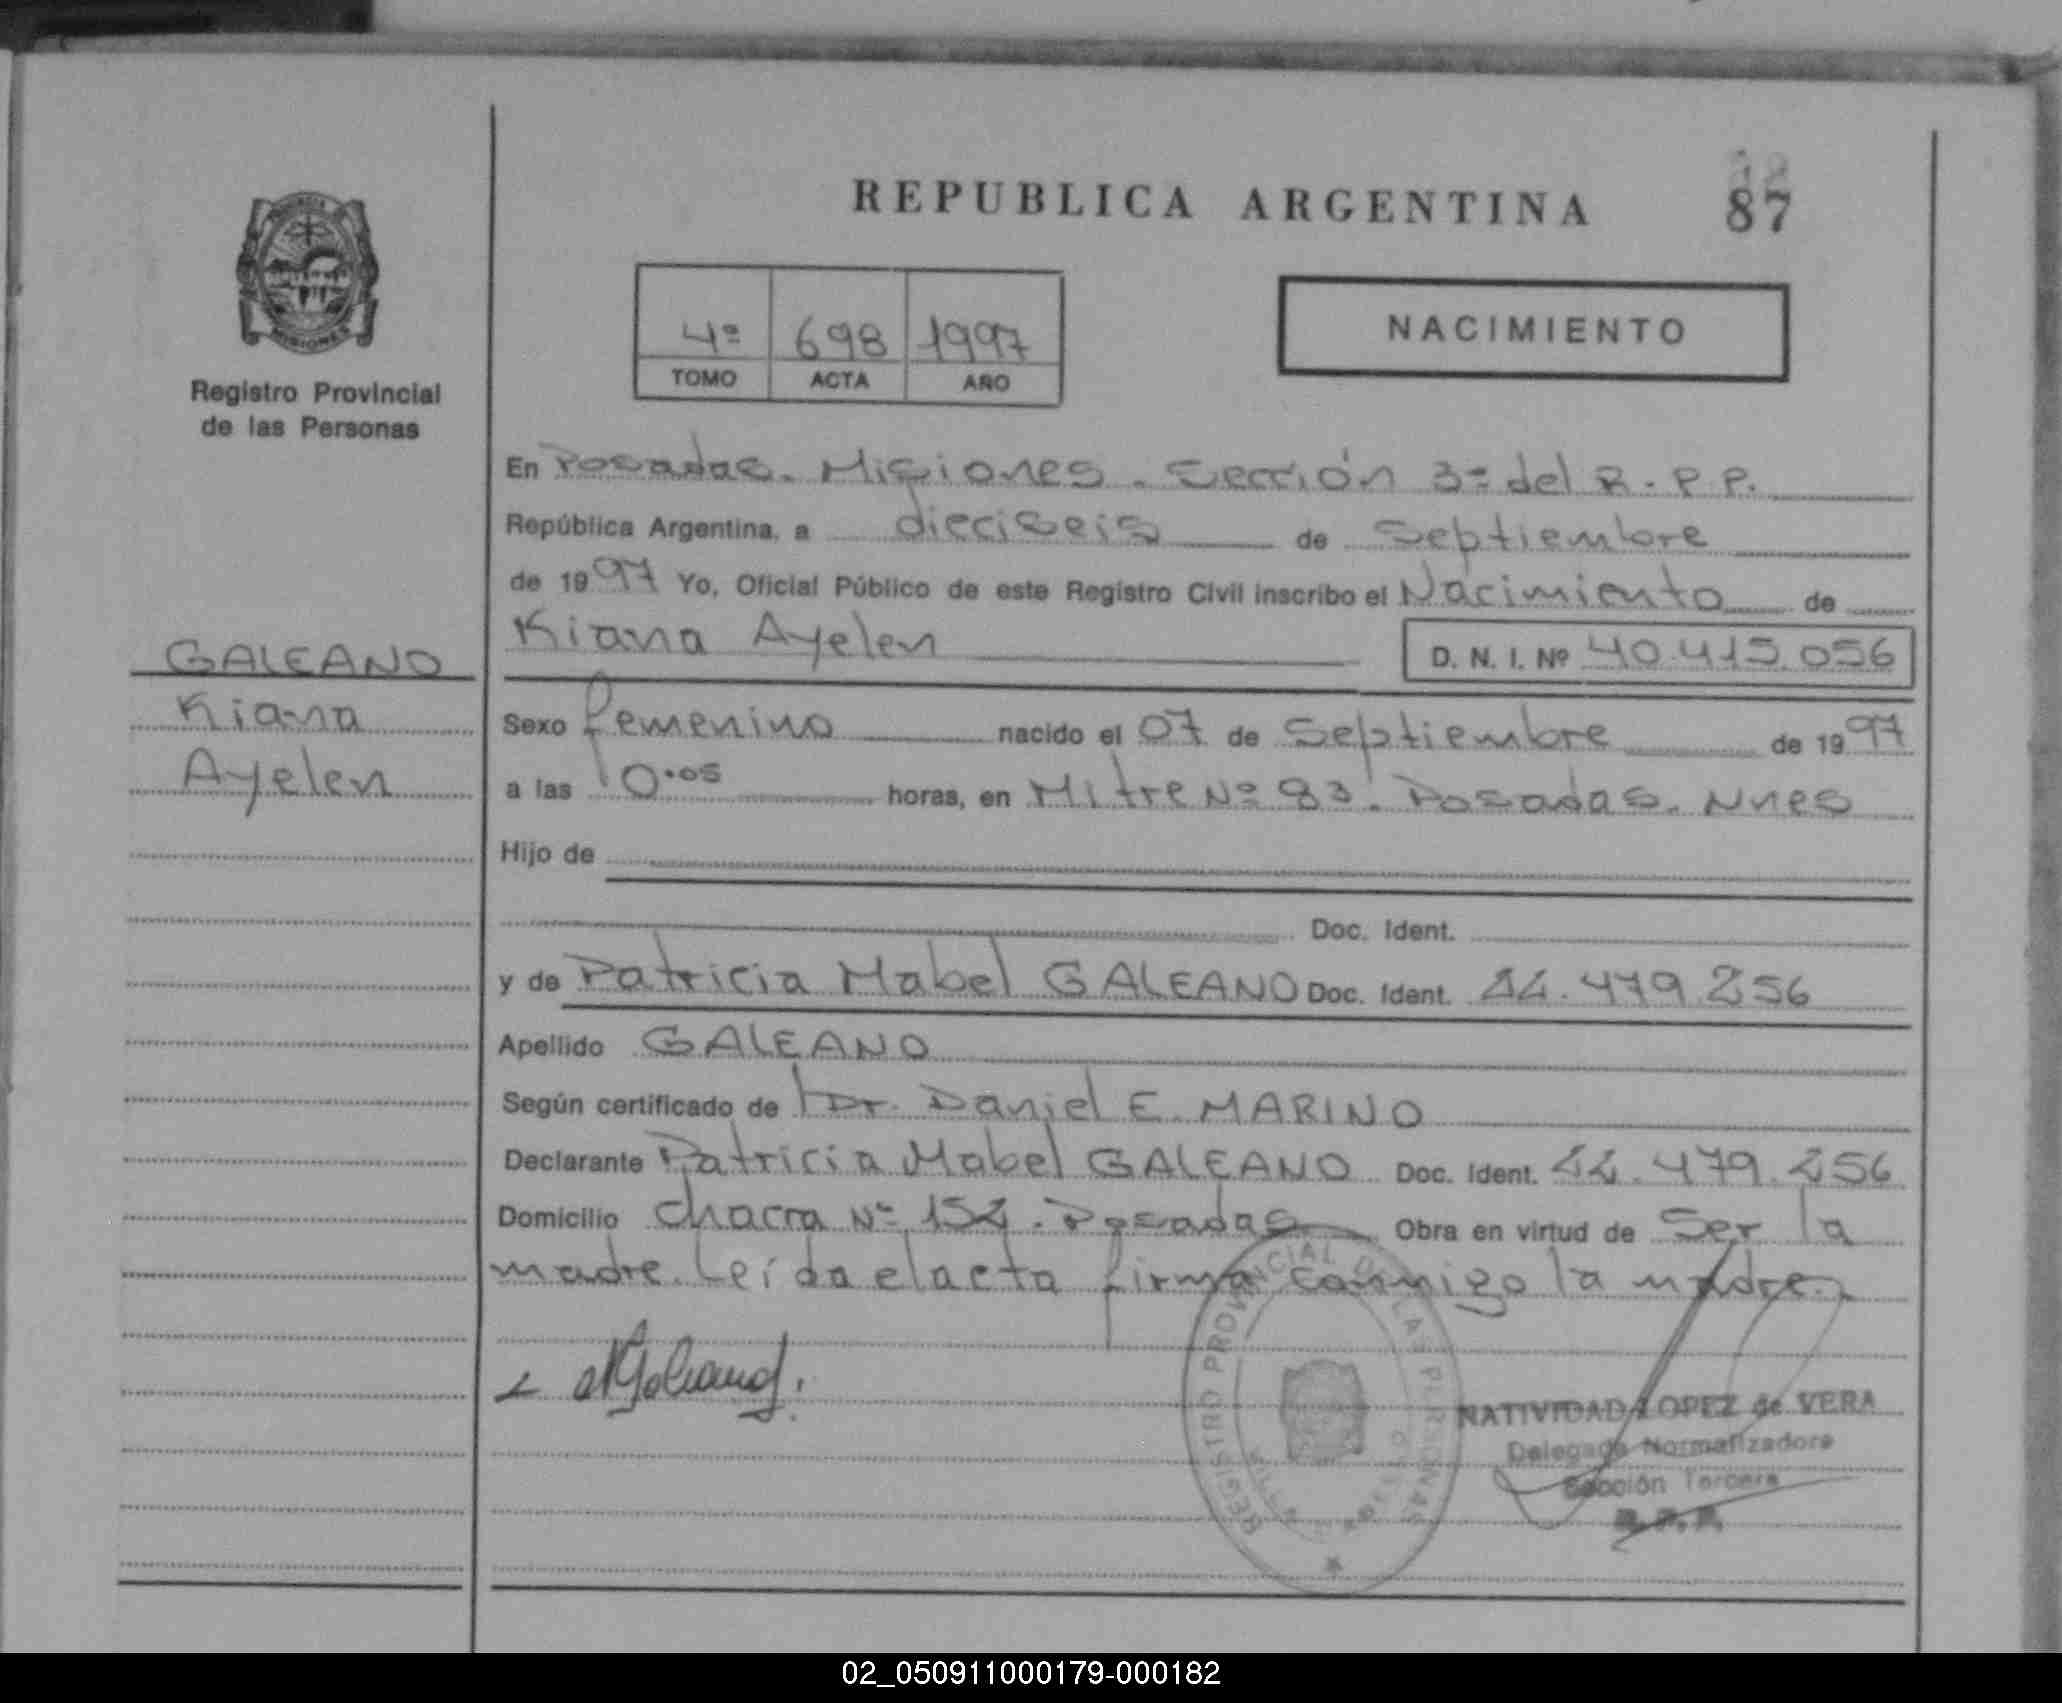 REPUBLICA ARGENTINA
87
4º 698 1997
TOMO ACTA AÑO
NACIMIENTO
MISIONES
Registro Provincial
de las Personas
GALEANO
Kiana
Ayelen
En Posadas. Misiones. Sección 3º del R.P.P.
República Argentina, a dieciseis de Septiembre
de 1997 Yo, Oficial Público de este Registro Civil inscribo el Nacimiento de
Kiana Ayelen D. N. I. Nº 40.415.056
Sexo femenino nacido el 07 de Septiembre de 1997
a las 0.05 horas, en Mitre Nº 83. Posadas. Mnes
Hijo de
Doc. Ident.
y de Patricia Mabel GALEANO Doc. Ident. 22.479.256
Apellido GALEANO
Según certificado de Dr. Daniel E. MARINO
Declarante Patricia Mabel GALEANO Doc. Ident. 22.479.256
Domicilio Chacra Nº 152. Posadas Obra en virtud de Ser la
madre. Leída el acta firma conmigo la madre.
REGISTRO PROVINCIAL DE LAS PERSONAS
NATIVIDAD LOPEZ de VERA
Delegada Normalizadora
Sección Tercera
R. P. P.
02_050911000179-000182